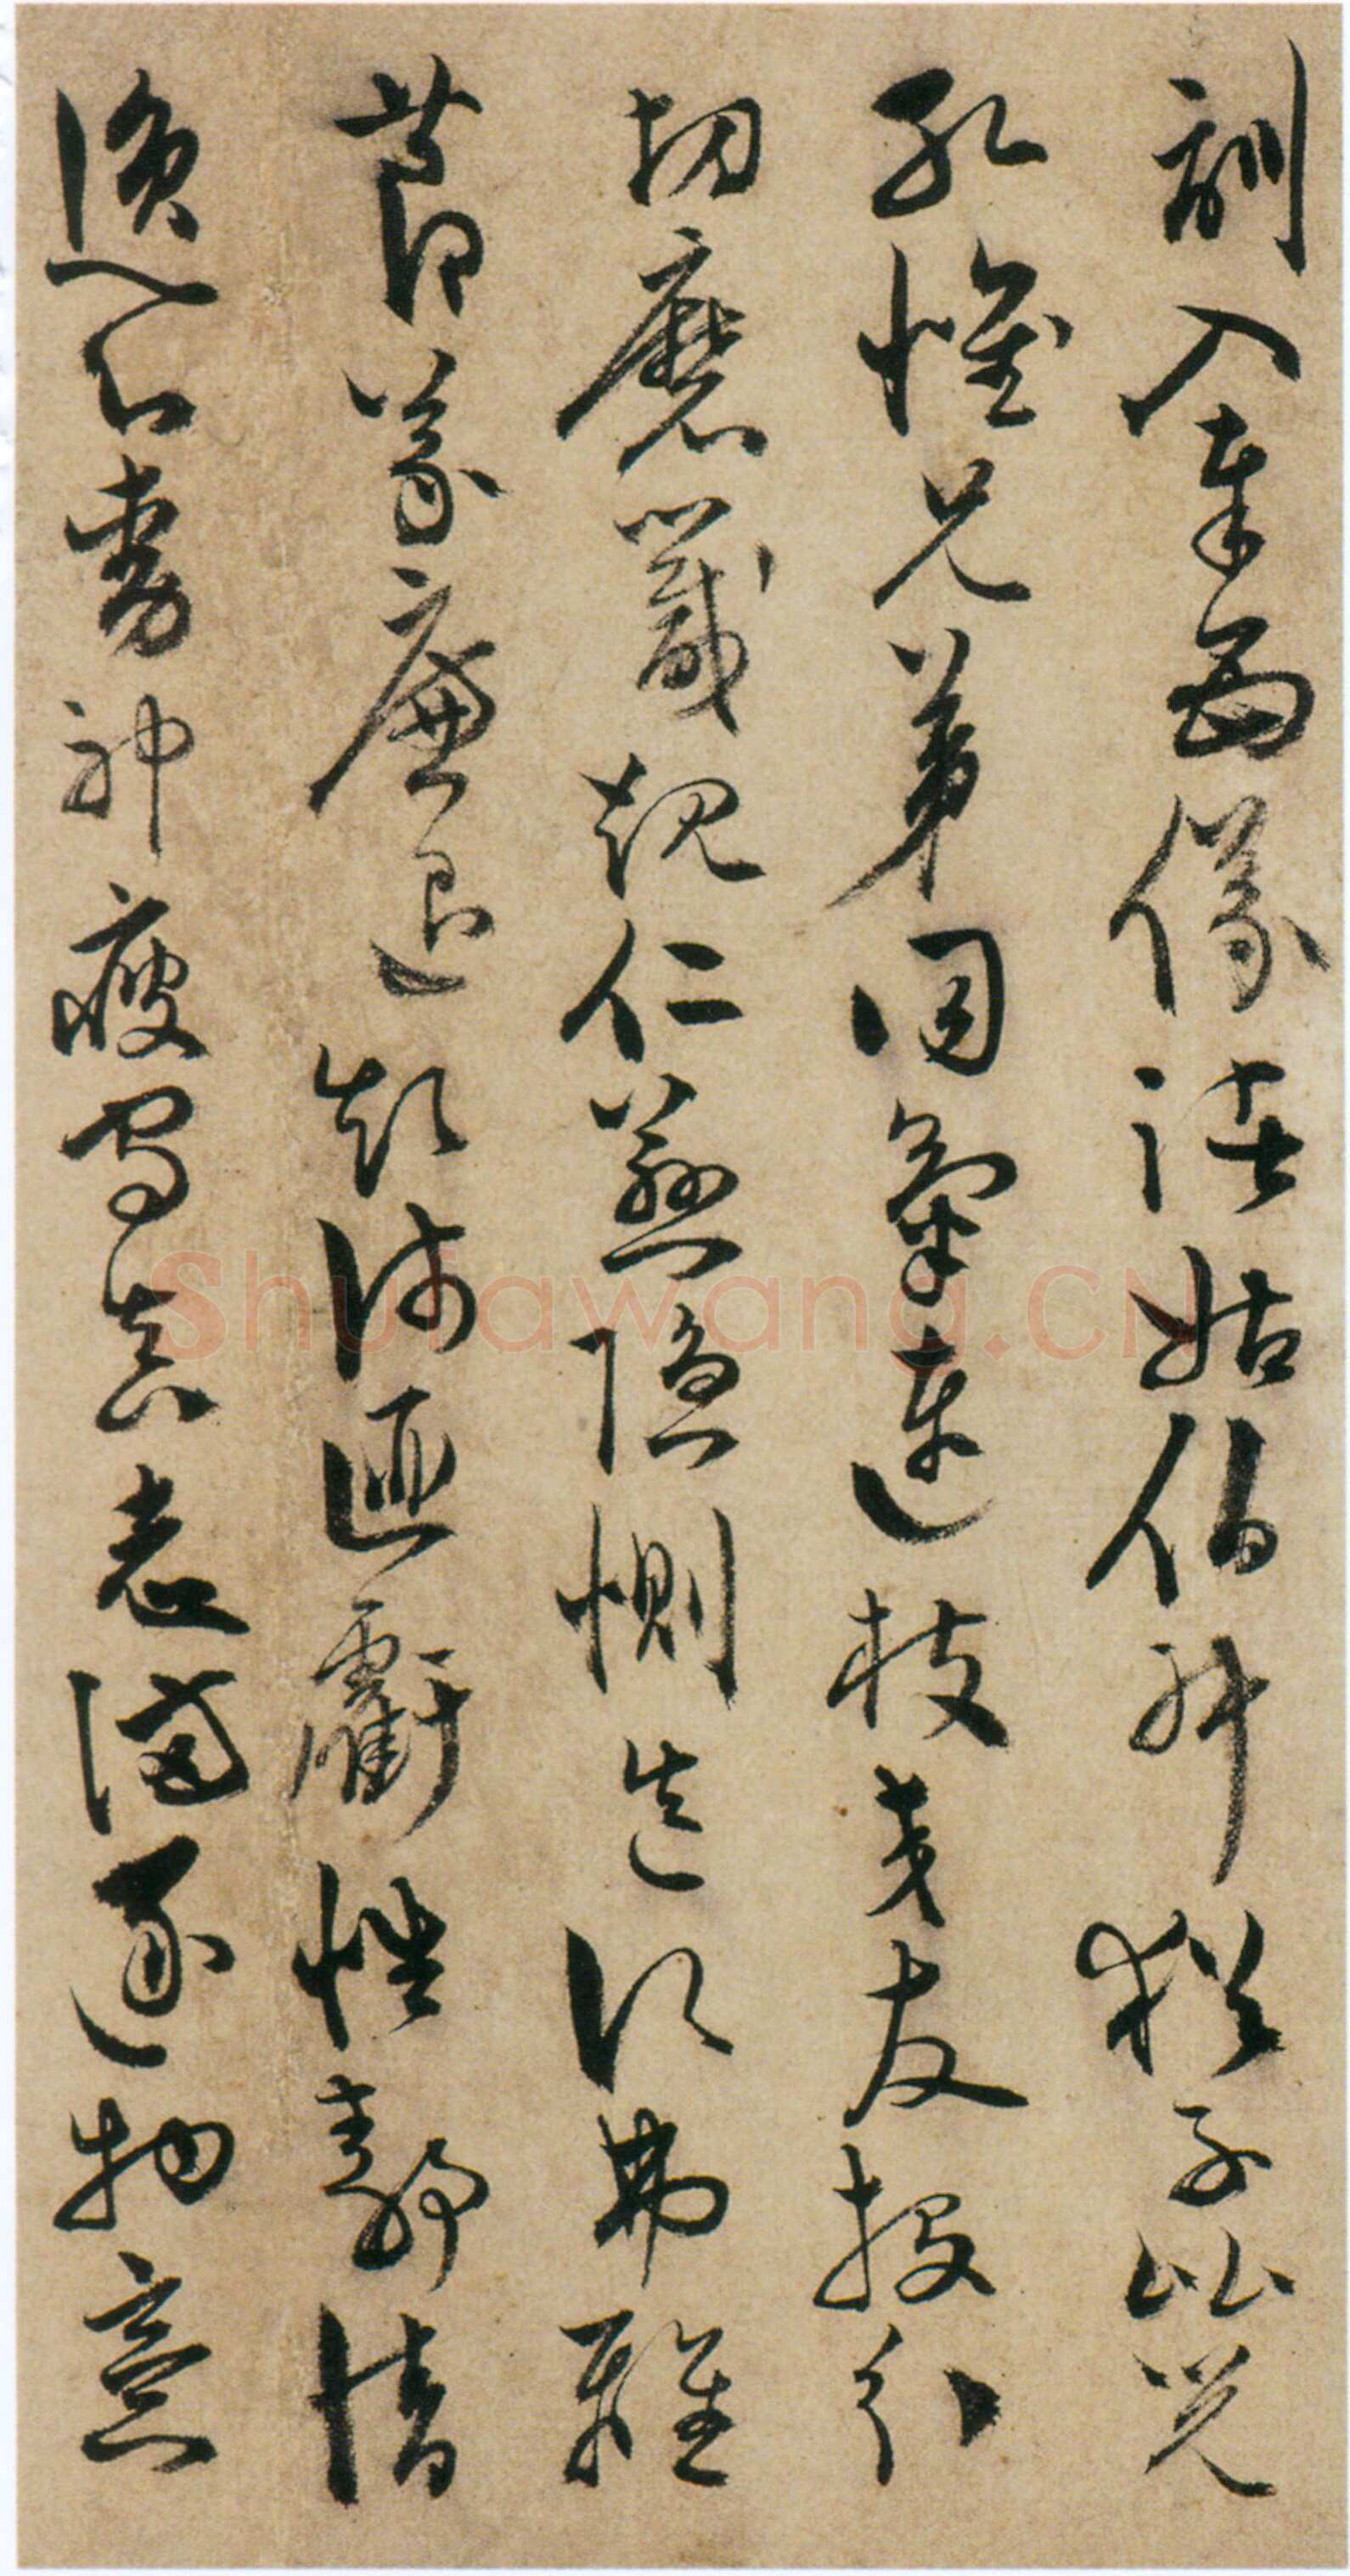 訓入奉母儀諸姑伯叔猶子比兒
孔懷兄弟同氣連枝交友投分
切磨箴規仁慈隱惻造次弗離
節義廉退顛沛匪虧性靜情
逸心動神疲守真志滿逐物意
Shufawang.CN